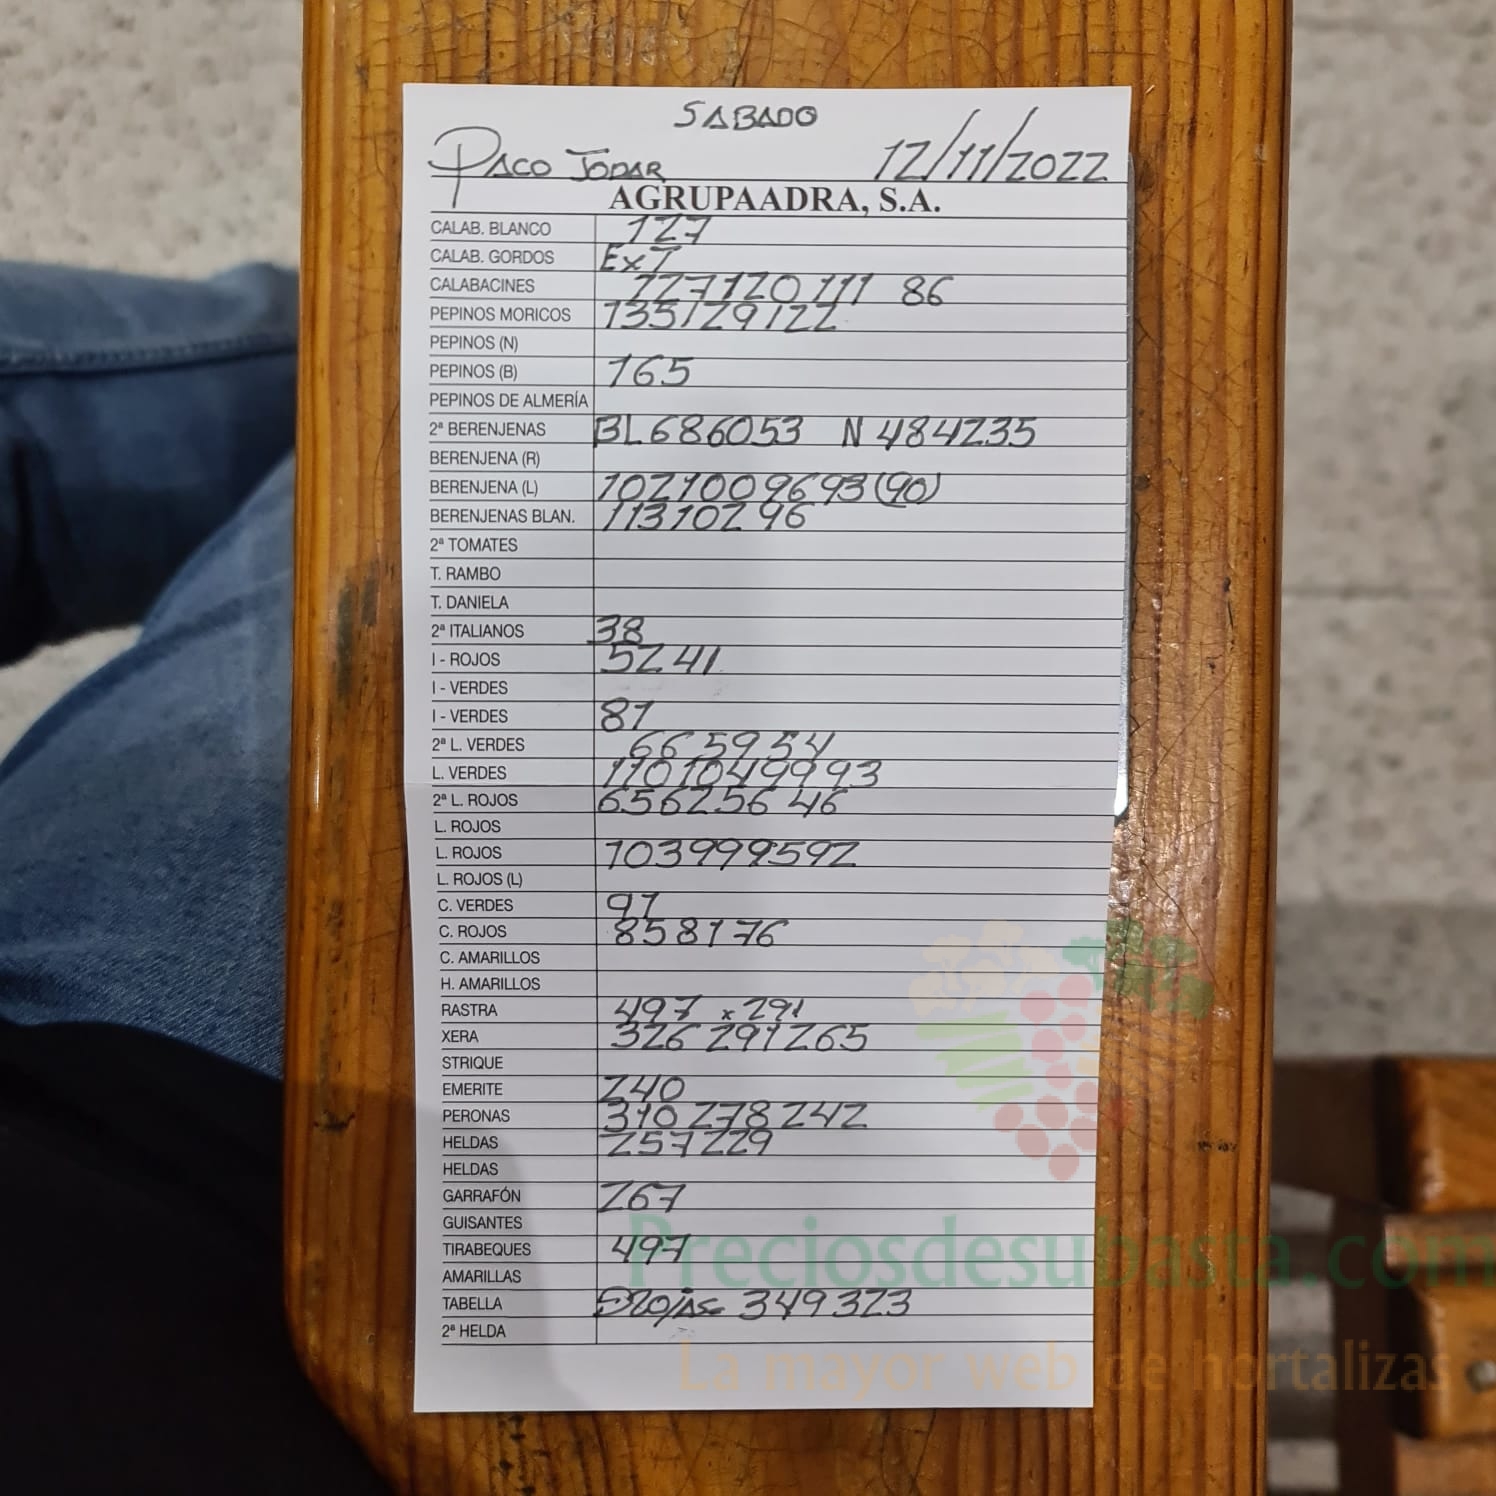 SABADO
PACO JODAR 12/11/2022
AGRUPAADRA, S.A.
CALAB. BLANCO 127
CALAB. GORDOS EXT
CALABACINES 227 120 111 86
PEPINOS MORICOS 135 129 122
PEPINOS (N)
PEPINOS (B) 165
PEPINOS DE ALMERÍA
2ª BERENJENAS BL 68 60 53 N 48 42 35
BERENJENA (R)
BERENJENA (L) 102 100 96 93 (90)
BERENJENAS BLAN. 113 102 96
2ª TOMATES
T. RAMBO
T. DANIELA
2ª ITALIANOS 38
I - ROJOS 52 41
I - VERDES
I - VERDES 81
2ª L. VERDES 66 59 54
L. VERDES 110 104 99 93
2ª L. ROJOS 65 62 56 46
L. ROJOS
L. ROJOS 103 99 95 92
L. ROJOS (L)
C. VERDES 97
C. ROJOS 85 81 76
C. AMARILLOS
H. AMARILLOS
RASTRA 497 x 291
XERA 326 291 265
STRIQUE
EMERITE 240
PERONAS 310 278 242
HELDAS 257 229
HELDAS
GARRAFÓN 267
GUISANTES
TIRABEQUES 497
AMARILLAS
TABELLA 349 323
2ª HELDA
Preciosdesubasta.com
La mayor web de hortalizas